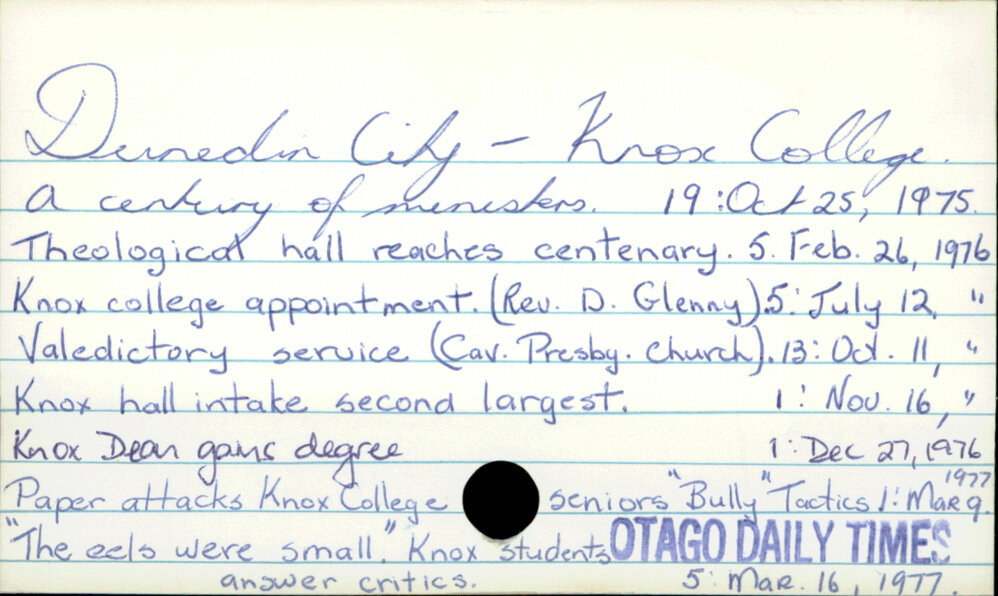 Dunedin City - Knox College.
A century of ministers. 19:Oct 25, 1975.
Theological hall reaches centenary. 5. Feb. 26, 1976
Knox college appointment. (Rev. D. Glenny). 5: July 12, "
Valedictory service (Cav. Presby. Church). 13: Oct. 11, "
Knox hall intake second largest. 1: Nov. 16, "
Knox Dean gains degree 1: Dec 27, 1976
Paper attacks Knox College seniors "Bully" Tactics 1: Mar 9. 1977
"The eels were small." Knox students OTAGO DAILY TIMES
answer critics. 5: Mar. 16, 1977.